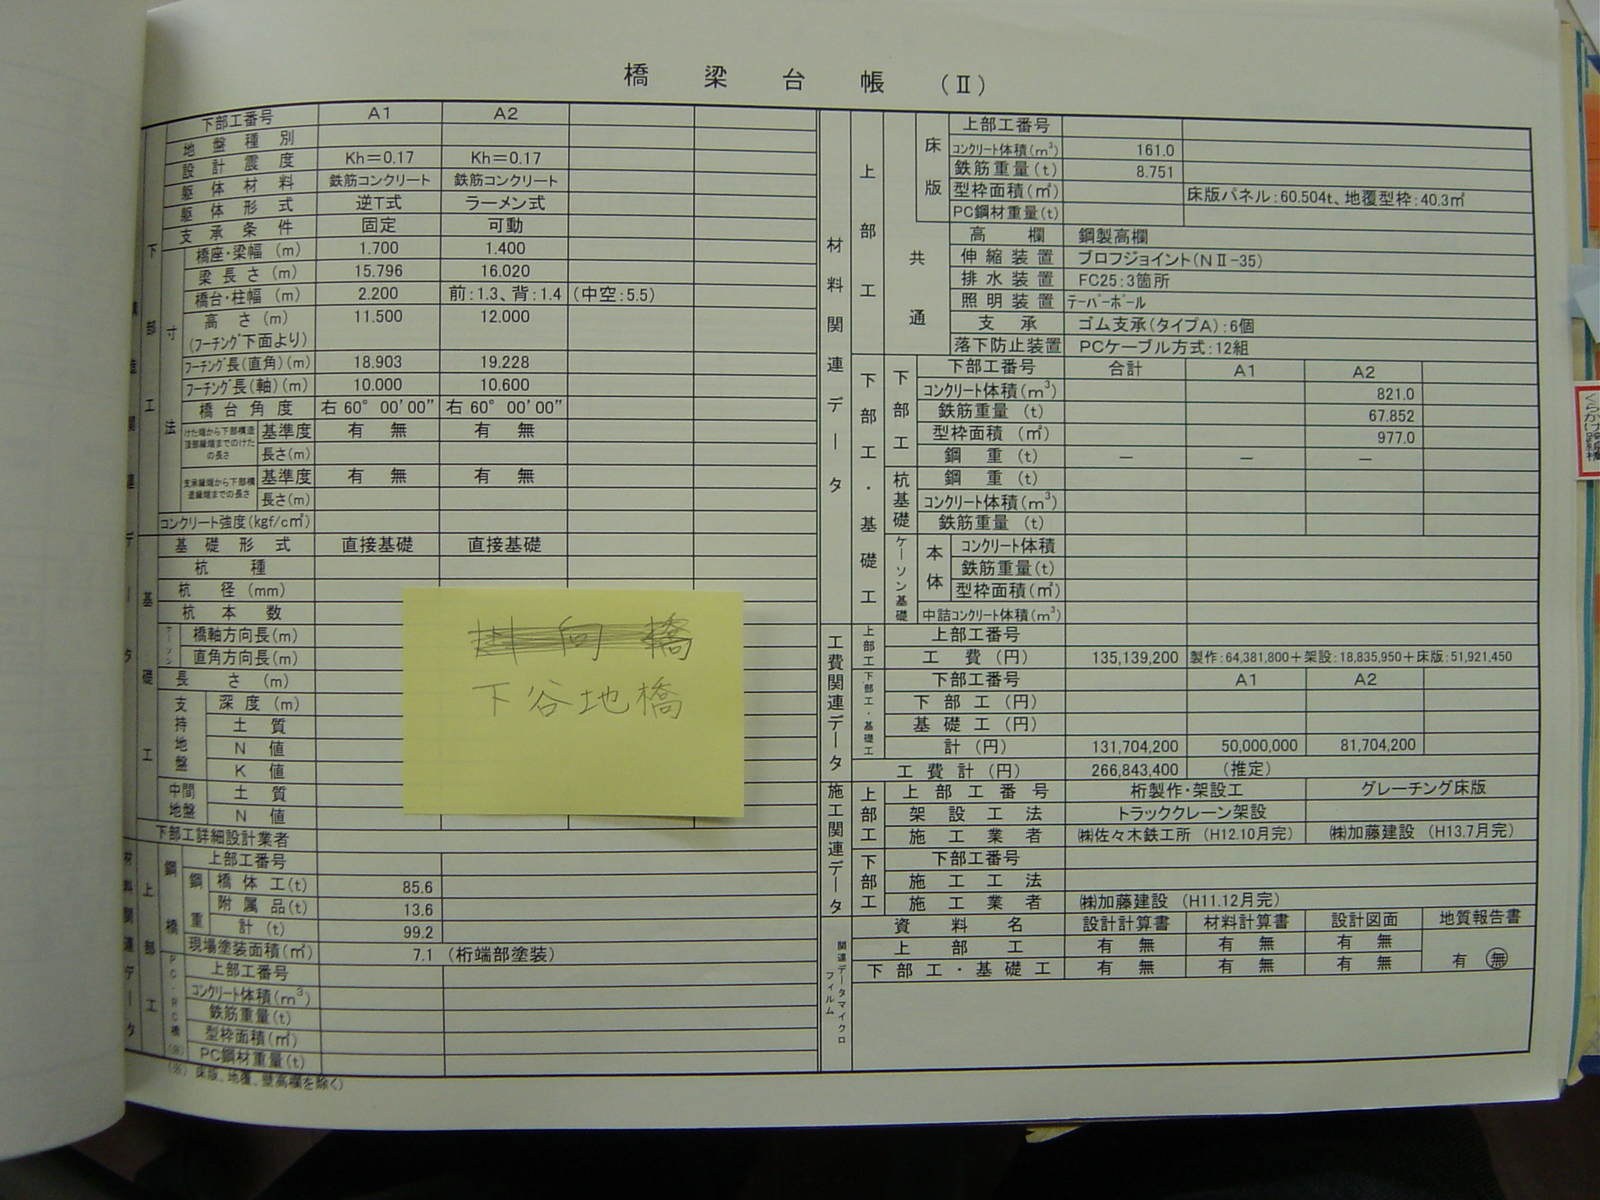 橋梁台帳 (Ⅱ)
下部工番号 A1 A2
地盤種別
設計震度 Kh=0.17 Kh=0.17
躯体材料 鉄筋コンクリート 鉄筋コンクリート
躯体形式 逆T式 ラーメン式
支承条件 固定 可動
橋座・梁幅(m) 1.700 1.400
梁長さ(m) 15.796 16.020
橋台・柱幅(m) 2.200 前:1.3、背:1.4 (中空:5.5)
高さ(m) 11.500 12.000
(フーチング下面より)
フーチング長(直角)(m) 18.903 19.228
フーチング長(軸)(m) 10.000 10.600
橋台角度 右60°00'00" 右60°00'00"
けた端から下部構造頂部縁端までのけたの長さ 基準度 有 無 有 無
長さ(m)
支承縁端から下部構造縁端までの長さ 基準度 有 無 有 無
長さ(m)
コンクリート強度(kgf/c㎡)
下部工
寸法
基礎形式 直接基礎 直接基礎
杭種
杭径(mm)
杭本数
橋軸方向長(m)
直角方向長(m)
長さ(m)
支持地盤 深度(m)
土質
N値
K値
中間地盤 土質
N値
基礎工
下部工詳細設計業者
上部工
鋼橋
上部工番号
鋼重 橋体工(t) 85.6
附属品(t) 13.6
計(t) 99.2
現場塗装面積(㎡) 7.1 (桁端部塗装)
PC・RC橋(※)
上部工番号
コンクリート体積(m³)
鉄筋重量(t)
型枠面積(㎡)
PC鋼材重量(t)
(※)床版、地覆、壁高欄を除く)
下谷地橋
材料関連データ
上部工
床版
上部工番号
コンクリート体積(m³) 161.0
鉄筋重量(t) 8.751
型枠面積(㎡) 床版パネル:60.504t、地覆型枠:40.3㎡
PC鋼材重量(t)
共通
高欄 鋼製高欄
伸縮装置 プロフジョイント(NⅡ-35)
排水装置 FC25:3箇所
照明装置 テーパーポール
支承 ゴム支承(タイプA):6個
落下防止装置 PCケーブル方式:12組
下部工・基礎工
下部工
下部工番号 合計 A1 A2
コンクリート体積(m³) 821.0
鉄筋重量(t) 67.852
型枠面積(㎡) 977.0
鋼重(t) － － －
杭基礎 鋼重(t)
コンクリート体積(m³)
鉄筋重量(t)
ケーソン基礎 本体 コンクリート体積
鉄筋重量(t)
型枠面積(㎡)
中詰コンクリート体積(m³)
工費関連データ
上部工 上部工番号
工費(円) 135,139,200 製作:64,381,800+架設:18,835,950+床版:51,921,450
下部工・基礎工 下部工番号 A1 A2
下部工(円)
基礎工(円)
計(円) 131,704,200 50,000,000 81,704,200
工費計(円) 266,843,400 (推定)
施工関連データ
上部工 上部工番号 桁製作・架設工 グレーチング床版
架設工法 トラッククレーン架設
施工業者 ㈱佐々木鉄工所 (H12.10月完) ㈱加藤建設 (H13.7月完)
下部工 下部工番号
施工工法
施工業者 ㈱加藤建設 (H11.12月完)
関連データマイクロフィルム
資料名 設計計算書 材料計算書 設計図面 地質報告書
上部工 有 無 有 無 有 無
有 無
下部工・基礎工 有 無 有 無 有 無
くらかけ跨線橋